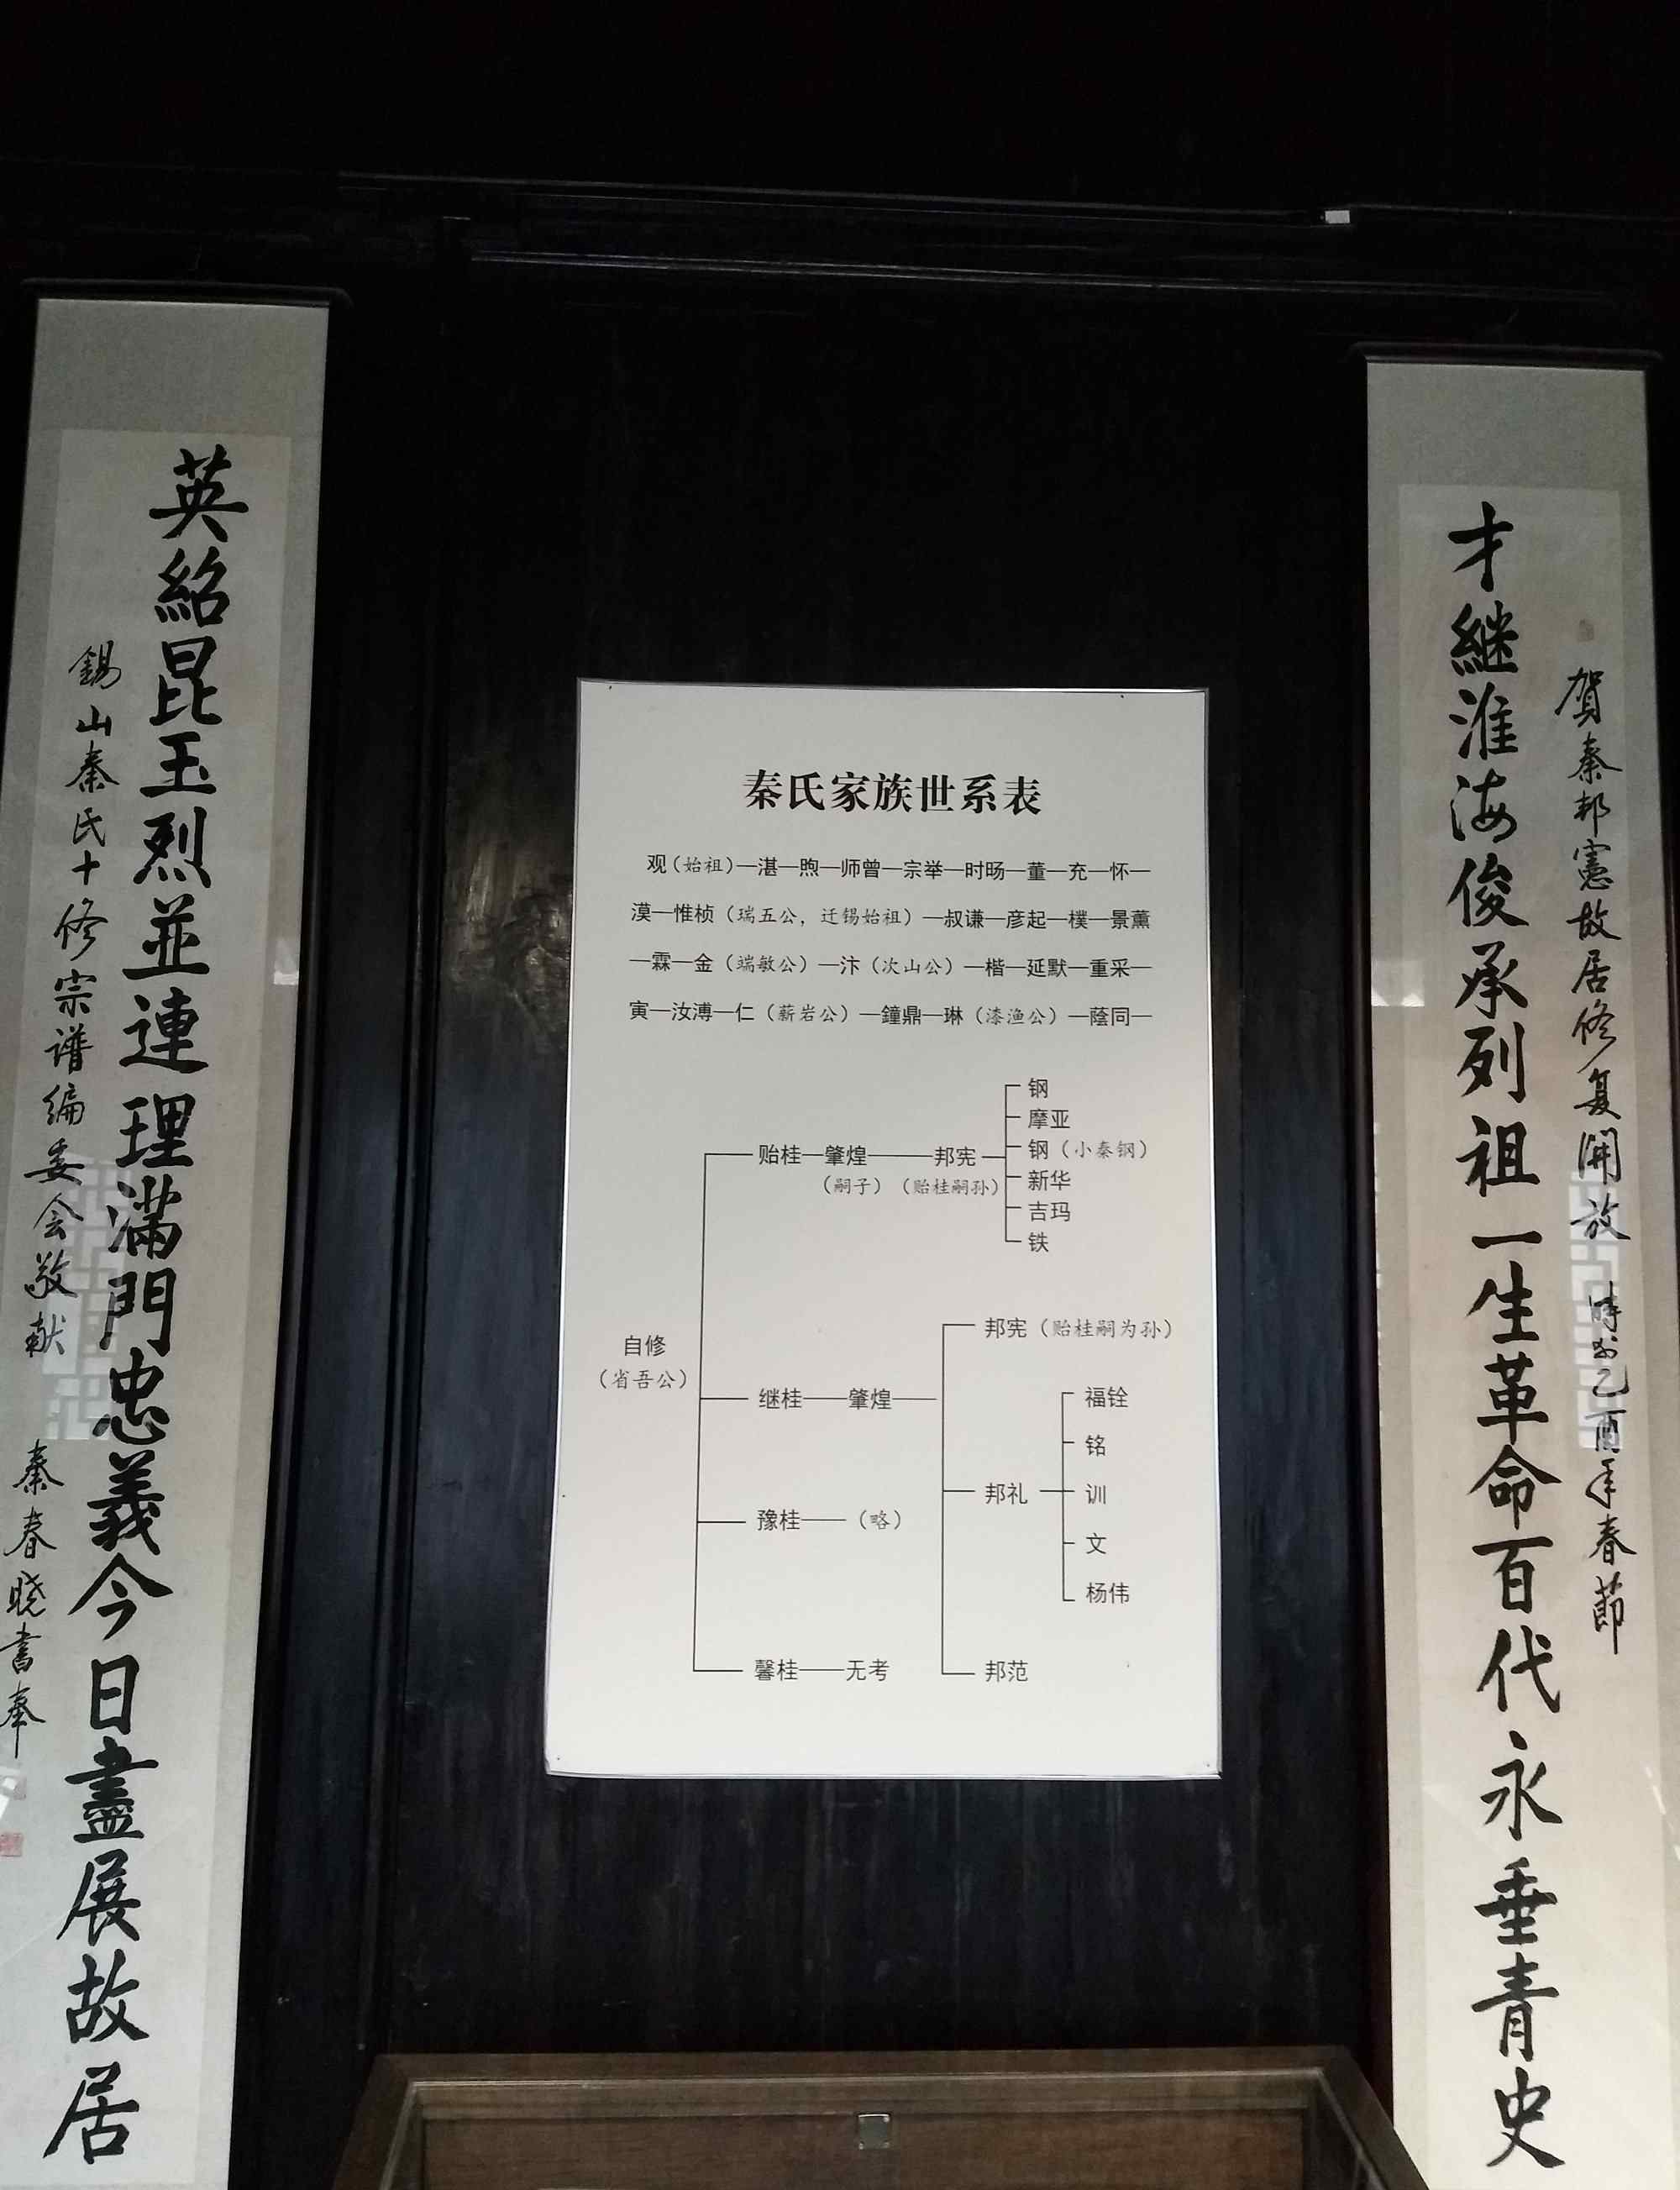 賀秦邦憲故居修复開放 時於乙酉年春節
才継淮海俊承列祖一生革命百代永垂青史
秦氏家族世系表
观（始祖）—湛—煦—师曾—宗举—时旸—董—充—怀—
漠—惟桢（瑞五公，迁锡始祖）—叔谦—彦起—樸—景薰
—霖—金（端敏公）—汴（次山公）—楷—延默—重采—
寅—汝溥—仁（薪岩公）—鐘鼎—琳（漆渔公）—蔭同—
自修
（省吾公）
贻桂—肇煌——邦宪
（嗣子）（贻桂嗣孙）
钢
摩亚
钢（小秦钢）
新华
吉玛
铁
继桂——肇煌——
邦宪（贻桂嗣为孙）
邦礼
福铨
铭
训
文
杨伟
邦范
豫桂——（略）
馨桂——无考
英紹昆玉烈並連理滿門忠義今日盡展故居
錫山秦氏十修宗谱编委会敬献
秦春晓書奉